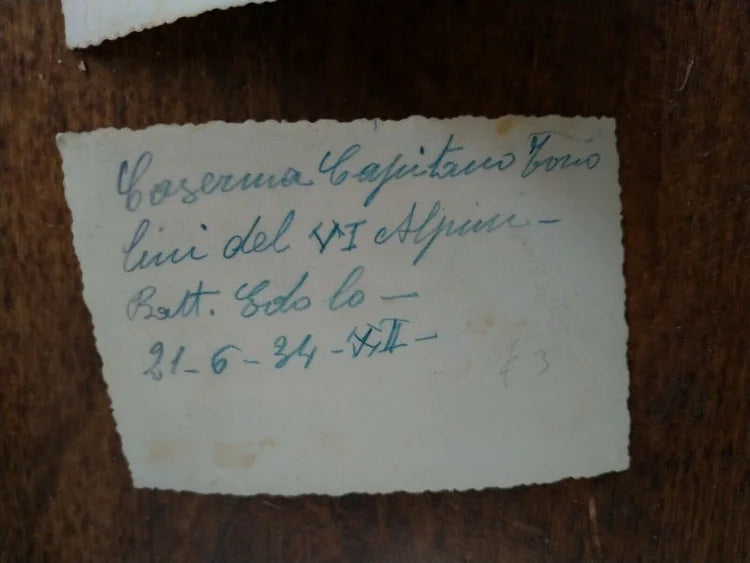 Caserma Capitano Tono
lini del VI Alpini -
Batt. Edolo -
21-6-34-XII-
£ 3